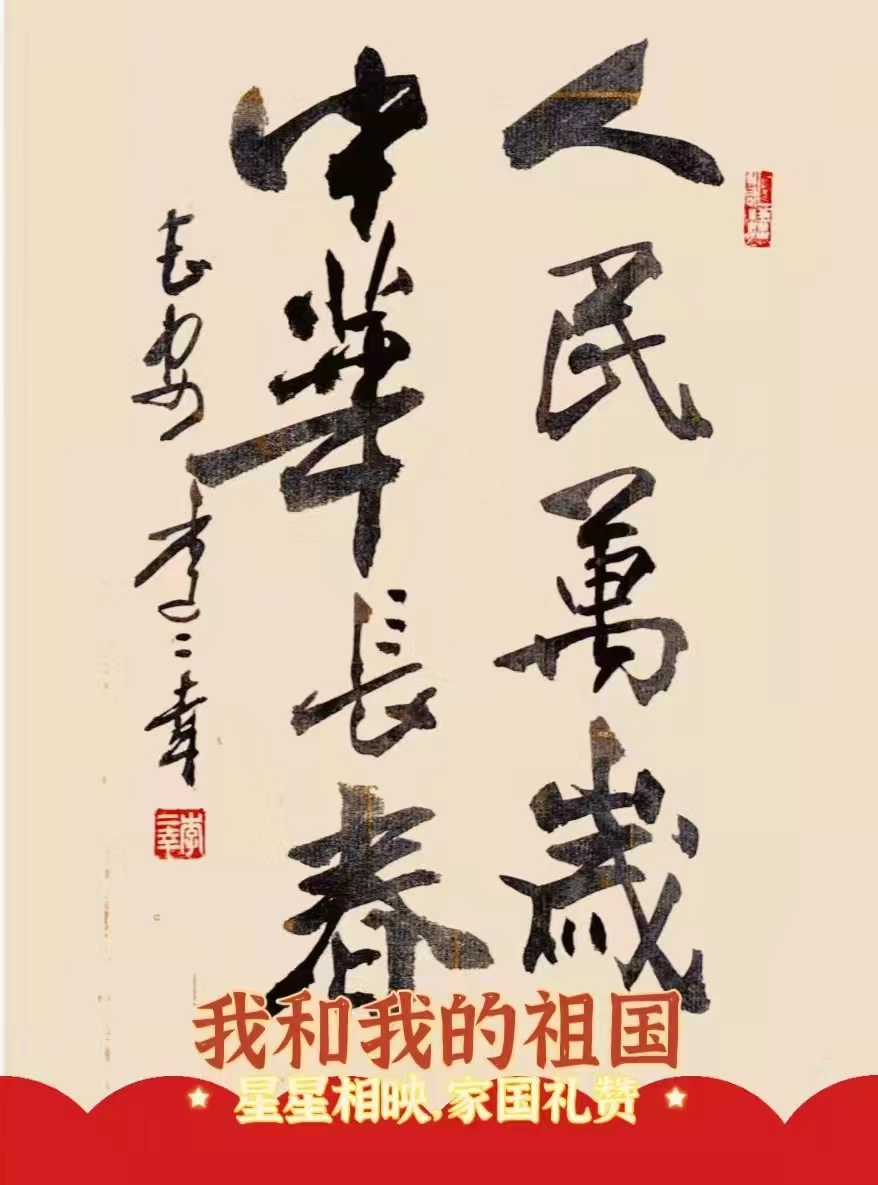 人民萬歲
中華長春
長安李二幸
李二幸
我和我的祖国
星星相映,家国礼赞